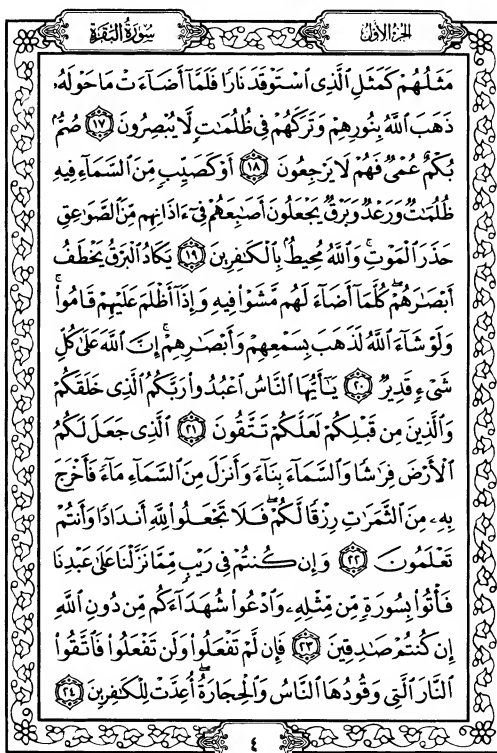 سُورَةُ البَقَرَةِ
الجُزءُ الأَوَّلُ
مَثَلُهُمْ كَمَثَلِ ٱلَّذِى ٱسْتَوْقَدَ نَارًا فَلَمَّآ أَضَآءَتْ مَا حَوْلَهُۥ
ذَهَبَ ٱللَّهُ بِنُورِهِمْ وَتَرَكَهُمْ فِى ظُلُمَٰتٍ لَّا يُبْصِرُونَ ﴿١٧﴾ صُمٌّۢ
بُكْمٌ عُمْىٌ فَهُمْ لَا يَرْجِعُونَ ﴿١٨﴾ أَوْ كَصَيِّبٍ مِّنَ ٱلسَّمَآءِ فِيهِ
ظُلُمَٰتٌ وَرَعْدٌ وَبَرْقٌ يَجْعَلُونَ أَصَٰبِعَهُمْ فِىٓ ءَاذَانِهِم مِّنَ ٱلصَّوَٰعِقِ
حَذَرَ ٱلْمَوْتِ ۚ وَٱللَّهُ مُحِيطٌۢ بِٱلْكَٰفِرِينَ ﴿١٩﴾ يَكَادُ ٱلْبَرْقُ يَخْطَفُ
أَبْصَٰرَهُمْ ۖ كُلَّمَآ أَضَآءَ لَهُم مَّشَوْا۟ فِيهِ وَإِذَآ أَظْلَمَ عَلَيْهِمْ قَامُوا۟ ۚ
وَلَوْ شَآءَ ٱللَّهُ لَذَهَبَ بِسَمْعِهِمْ وَأَبْصَٰرِهِمْ ۚ إِنَّ ٱللَّهَ عَلَىٰ كُلِّ
شَىْءٍ قَدِيرٌ ﴿٢٠﴾ يَٰٓأَيُّهَا ٱلنَّاسُ ٱعْبُدُوا۟ رَبَّكُمُ ٱلَّذِى خَلَقَكُمْ
وَٱلَّذِينَ مِن قَبْلِكُمْ لَعَلَّكُمْ تَتَّقُونَ ﴿٢١﴾ ٱلَّذِى جَعَلَ لَكُمُ
ٱلْأَرْضَ فِرَٰشًا وَٱلسَّمَآءَ بِنَآءً وَأَنزَلَ مِنَ ٱلسَّمَآءِ مَآءً فَأَخْرَجَ
بِهِۦ مِنَ ٱلثَّمَرَٰتِ رِزْقًا لَّكُمْ ۖ فَلَا تَجْعَلُوا۟ لِلَّهِ أَندَادًا وَأَنتُمْ
تَعْلَمُونَ ﴿٢٢﴾ وَإِن كُنتُمْ فِى رَيْبٍ مِّمَّا نَزَّلْنَا عَلَىٰ عَبْدِنَا
فَأْتُوا۟ بِسُورَةٍ مِّن مِّثْلِهِۦ وَٱدْعُوا۟ شُهَدَآءَكُم مِّن دُونِ ٱللَّهِ
إِن كُنتُمْ صَٰدِقِينَ ﴿٢٣﴾ فَإِن لَّمْ تَفْعَلُوا۟ وَلَن تَفْعَلُوا۟ فَٱتَّقُوا۟
ٱلنَّارَ ٱلَّتِى وَقُودُهَا ٱلنَّاسُ وَٱلْحِجَارَةُ ۖ أُعِدَّتْ لِلْكَٰفِرِينَ ﴿٢٤﴾
٤